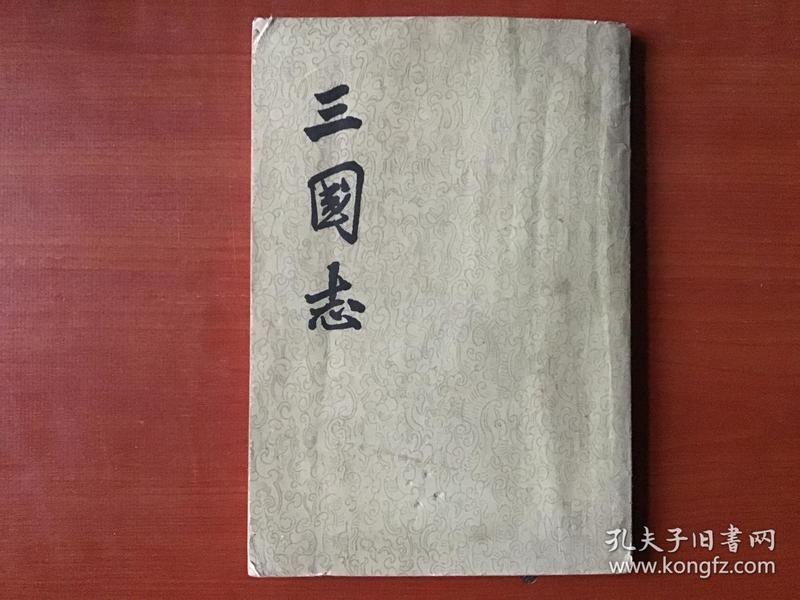 三國志
孔夫子旧書网
www.kongfz.com